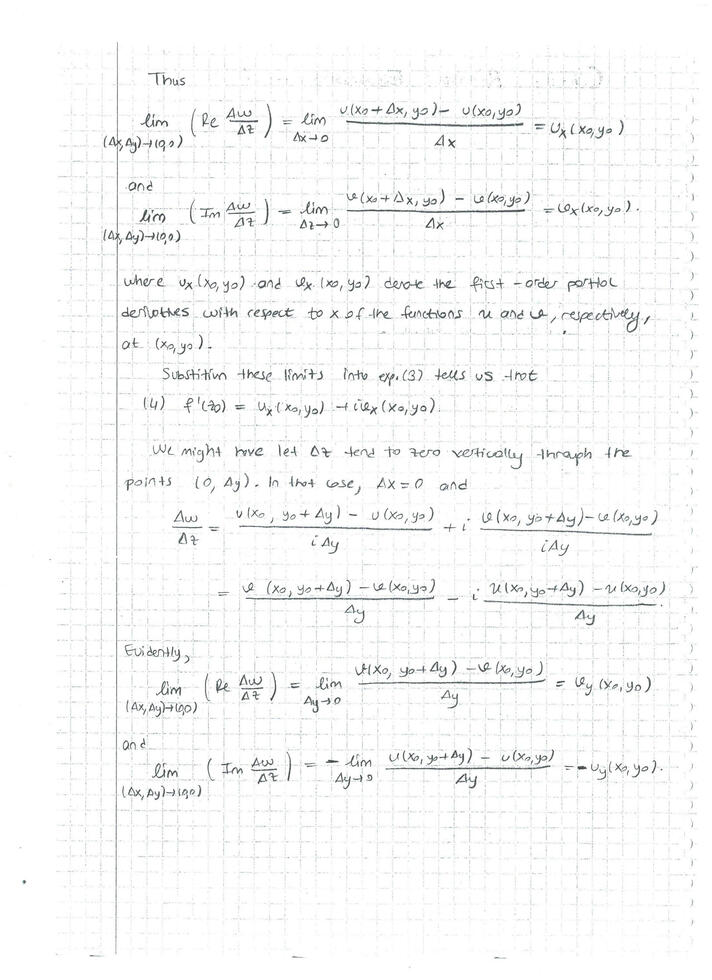 Thus
lim (Δx,Δy)→(0,0) (Re Δw/Δz) = lim Δx→0 u(x0+Δx, y0) − u(x0,y0) / Δx = ux(x0,y0)
and
lim (Δx,Δy)→(0,0) (Im Δw/Δz) = lim Δz→0 v(x0+Δx, y0) − v(x0,y0) / Δx = vx(x0,y0).
where ux(x0,y0) and vx(x0,y0) denote the first-order partial
derivatives with respect to x of the functions u and v, respectively,
at (x0,y0).
Substitun these limits into exp.(3) tells us that
(4) f'(z0) = ux(x0,y0) + ivx(x0,y0).
We might have let Δz tend to zero vertically through the
points (0, Δy). In that case, Δx = 0 and
Δw/Δz = u(x0, y0+Δy) − u(x0,y0) / iΔy + i v(x0, y0+Δy) − v(x0,y0) / iΔy
= v(x0, y0+Δy) − v(x0,y0) / Δy − i u(x0,y0+Δy) − u(x0,y0) / Δy
Evidently,
lim (Δx,Δy)→(0,0) (Re Δw/Δz) = lim Δy→0 v(x0, y0+Δy) − v(x0,y0) / Δy = vy(x0,y0)
and
lim (Δx,Δy)→(0,0) (Im Δw/Δz) = − lim Δy→0 u(x0,y0+Δy) − u(x0,y0) / Δy = −uy(x0,y0).